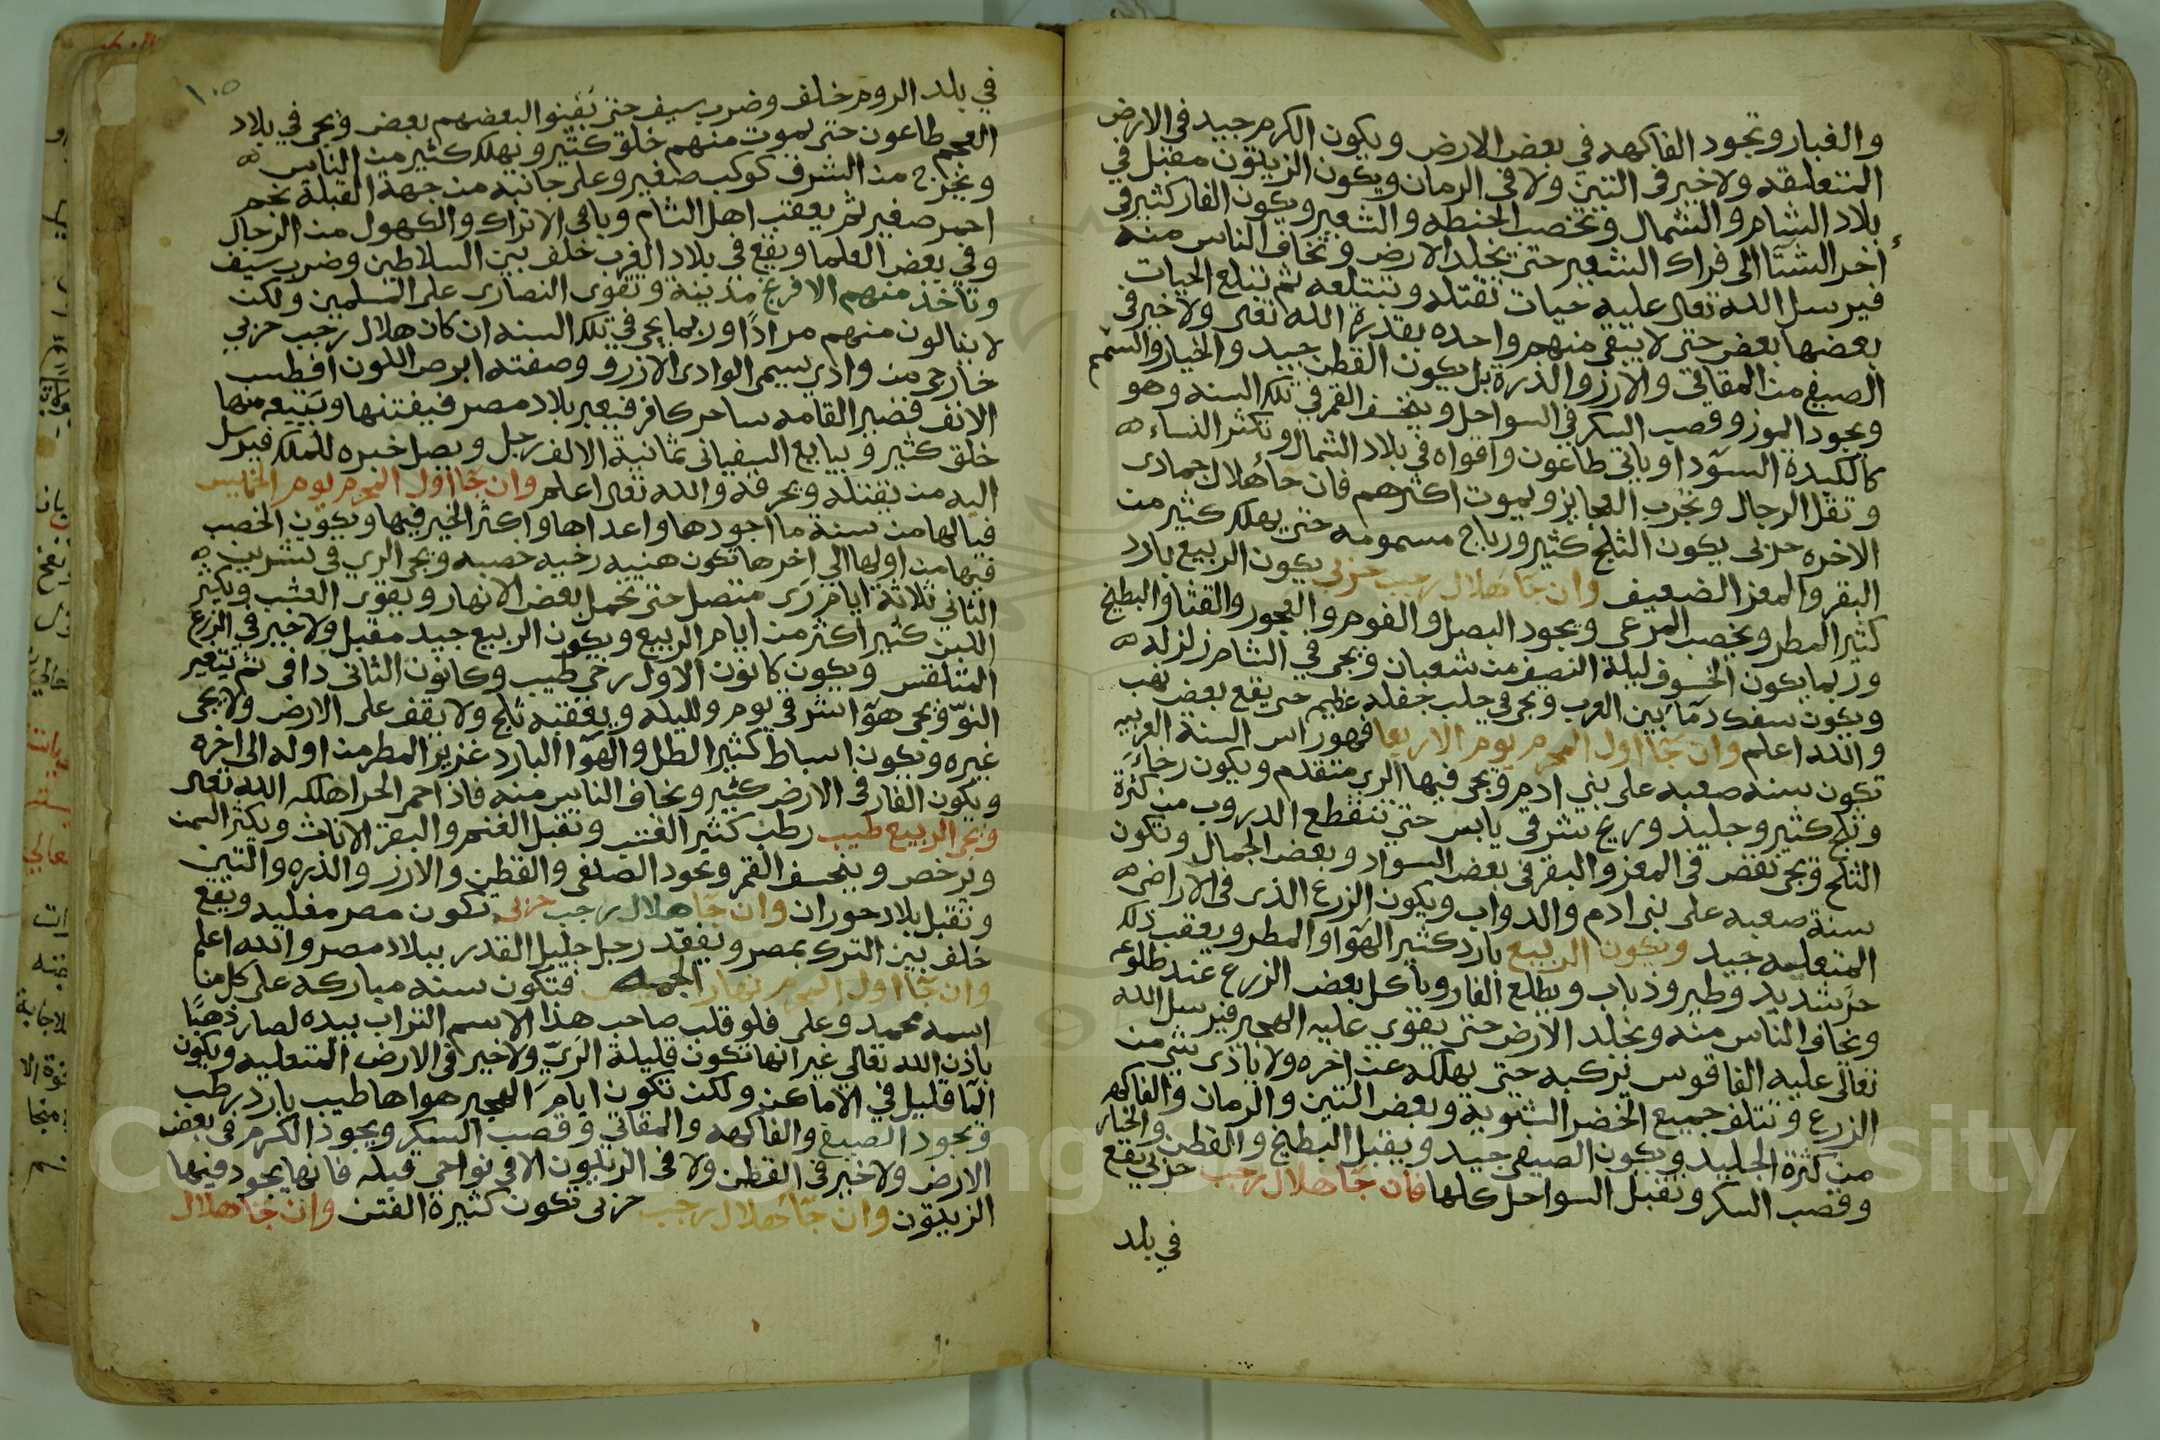 والغبار وتجود الفاكهه في بعض الارض ويكون الكرم جيد في الارض
المتعليقه ولاخير في التين ولا في الرمان ويكون الزيتون مقبل في
بلاد الشام والشمال وتخصب الحنطه والشعير ويكون الفار كثير في
اخر الشتا الى فراك الشعير حتى يخلد الارض وتخاف الناس منه
فيرسل الله تعالى عليه حيات تقتله وتبتلعه ثم تبلع الحيات
بعضها بعض حتى لا يبقى منهم واحده بقدرة الله تعالى ولاخير في
الصيفي من المقاتي والارز والذرة بل يكون القطن جيد والخيار والسمسم
ويجود الموز وقصب السكر في السواحل وينخسف القمر في تلك السنه وهو
كالكبدة السودا وياتي طاعون وافواه في بلاد الشمال وتكثر النساء
وتقل الرجال وتخرب العجايز ويموت اكثرهم فان جا هلال جمادى
الاخره حزبى يكون الثلج كثير ورياح مسمومه حتى يهلك كثير من
البقر والمعز الضعيف وان جا هلال رجب حزبى يكون الربيع بارد
كثير المطر ويخصب المرعى ويجود البصل والفوم والعجور والقثا والبطيخ
وربما يكون الخسوف ليلة النصف من شعبان ويجي في الشام زلزله
ويكون سفك دما بين العرب ويجي في حلب جفله عظيم حتى يقع بعض نهب
والله اعلم وان جا اول المحرم يوم الاربعا فهو راس السنة العربيه
تكون سنه صعبه على بني ادم ويجي فيها الري متقدم ويكون رخاء
وثلج كثير وجليد وريح شرقي يابس حتى تنقطع الدروب من كثرة
الثلج ويجي نقص في المعز والبقر في بعض السواد وبعض الجمال وتكون
سنة صعبه على بني ادم والدواب ويكون الزرع الذي في الاراضي
المتعليه جيد ويكون الربيع بارد كثير الهوا والمطر ويعقب ذلك
حر شديد وطير وذباب ويطلع الفار وياكل بعض الزرع عند طلوعه
وتخاف الناس منه ويخلد الارض حتى يقوى عليه الهجير فيرسل الله
تعالى عليه الفاقوس تركبه حتى يهلكه عن اخره ولا ياذى شي من
الزرع وتتلف جميع الخضر الشتويه وبعض التين والرمان والفاكهه
من كثرة الجليد ويكون الصيفي جيد ويقبل البطيخ والقطن والخيار
وقصب السكر وتقبل السواحل كلها فان جا هلال رجب حزبى يقع
في بلد
١٠٥
في بلد الروم خلف وضرب سيف حتى يفنوا البعضهم بعض ويجي في بلاد
العجم طاعون حتى يموت منهم خلق كثير ويهلك كثير من الناس
ويخرج من الشرق كوكب صغير وعلى جانبه من جهة القبلة نجم
احمر صغير ثم يعقب اهل الشام وباقي الاتراك والكهول من الرجال
وفي بعض العلما ويقع في بلاد الغرب خلف بين السلاطين وضرب سيف
وتاخذ منهم الافرنج مدينة وتقوى النصارى على المسلمين ولكن
لا ينالون منهم مرادا وربما يجي في تلك السنه ان كان هلال رجب حزبي
خارجي من وادي يسمى الوادي الازرق وصفته ابرص اللون افطس
الانف قصير القامه ساحر كافر فيعبر بلاد مصر فيفتنها ويتبعه منها
خلق كثير ويبايع السفياني ثمانية الالف رجل ويصل خبره للملك فيرسل
اليه من يقتله ويحرقه والله تعالى اعلم وان جا اول المحرم يوم الخميس
فيالها من سنة ما اجودها واعداها واكثر الخير فيها ويكون الخصب
فيها من اولها الى اخرها تكون هنيه رخيه خصبه ويجي الري في تشرين
الثاني ثلاثة ايام ري متصل حتى تحمل بعض الانهار ويقوى العشب ويكثر
اللبن كثير اكثر من ايام الربيع ويكون الربيع جيد مقبل ولاخير في الزرع
المتلقس ويكون كانون الاول رخي طيب وكانون الثاني دافي ثم يتغير
النو ويجي هوا شرقي يوم وليله ويعقبه ثلج ولا يقف على الارض ولا يجي
غيره ويكون اسباط كثير الطل والهوا البارد غزير المطر من اوله الى اخره
ويكون الفار في الارض كثير وتخاف الناس منه فاذا حمر الحر اهلكه الله تعالى
ويجي الربيع طيب رطب كثير العشب وتقبل الغنم والبقر الاناث ويكثر السمن
ويرخص وينخسف القمر ويجود الصيفي والقطن والارز والذره والتين
وتقبل بلاد حوران وان جا هلال رجب حزبى تكون مصر مغليه ويقع
خلف بين الترك بمصر ويفقد رجل جليل القدر ببلاد مصر والله اعلم
وان جا اول المحرم نهار الجمعه فتكون سنه مباركه على كل من
اسمه محمد وعلي فلو قلب صاحب هذا الاسم التراب بيده لصار ذهبا
باذن الله تعالى غير انها تكون قليلة الري ولاخير في الارض المتعليه ويكون
الما قليل في الاماكن ولكن تكون ايام الهجير هواها طيب بارد رطب
ويجود الصيفي والفاكهه والمقاتي وقصب السكر ويجود الكرم في بعض
الارض ولاخير في القطن ولا في الزيتون الا في نواحي قبله فانها يجود فيها
الزيتون وان جا هلال رجب حزبى تكون كثيرة الفتن وان جا هلال